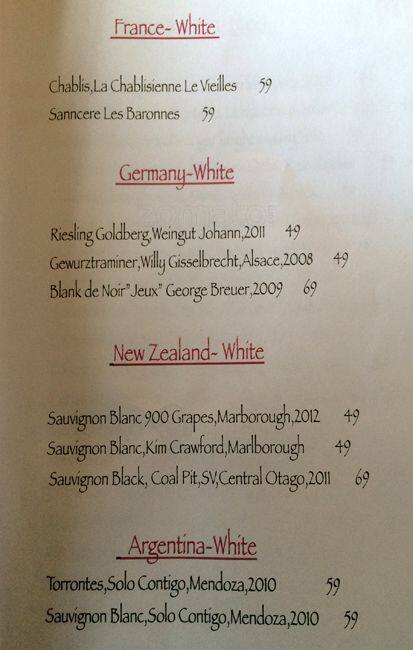 France- White
Chablis,La Chablisienne Le Vieilles 59
Sanncere Les Baronnes 59
Germany-White
Riesling Goldberg,Weingut Johann,2011 49
Gewurztraminer,Willy Gisselbrecht,Alsace,2008 49
Blank de Noir"Jeux" George Breuer,2009 69
New Zealand- White
Sauvignon Blanc 900 Grapes,Marborough,2012 49
Sauvignon Blanc,Kim Crawford,Marlborough 49
Sauvignon Black, Coal Pit,SV,Central Otago,2011 69
Argentina-White
Torrontes,Solo Contigo,Mendoza,2010 59
Sauvignon Blanc,Solo Contigo,Mendoza,2010 59